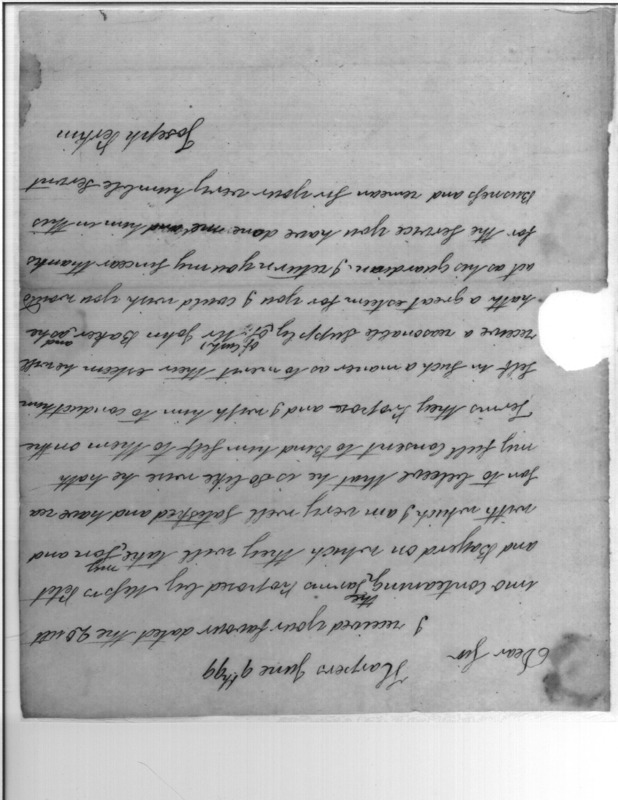 Harpers June 9th 99
Dear Sir
I received your favour dated the 20 ult
imo conteaning the Tarms Proposed by Messrs Pelet
and Bayerd on which they will take my Son and
with which I am very well Satesfied and have rea
son to beleeve that he is so like wise he hath
my full Consent to Bind him self to them on the
Terms they Propose and I wish him to conduct him
self in Such a maner as to merit their esteem he will
receive a reasonable Supply of Cash of Mr John Baker, and as he
hath a great esteem for you I could wish you would
act as his guardian, I return you my Sincear thanks
for the Service you have done me and him in this
Business and remean Sir your very humble Servent
Joseph Perkin